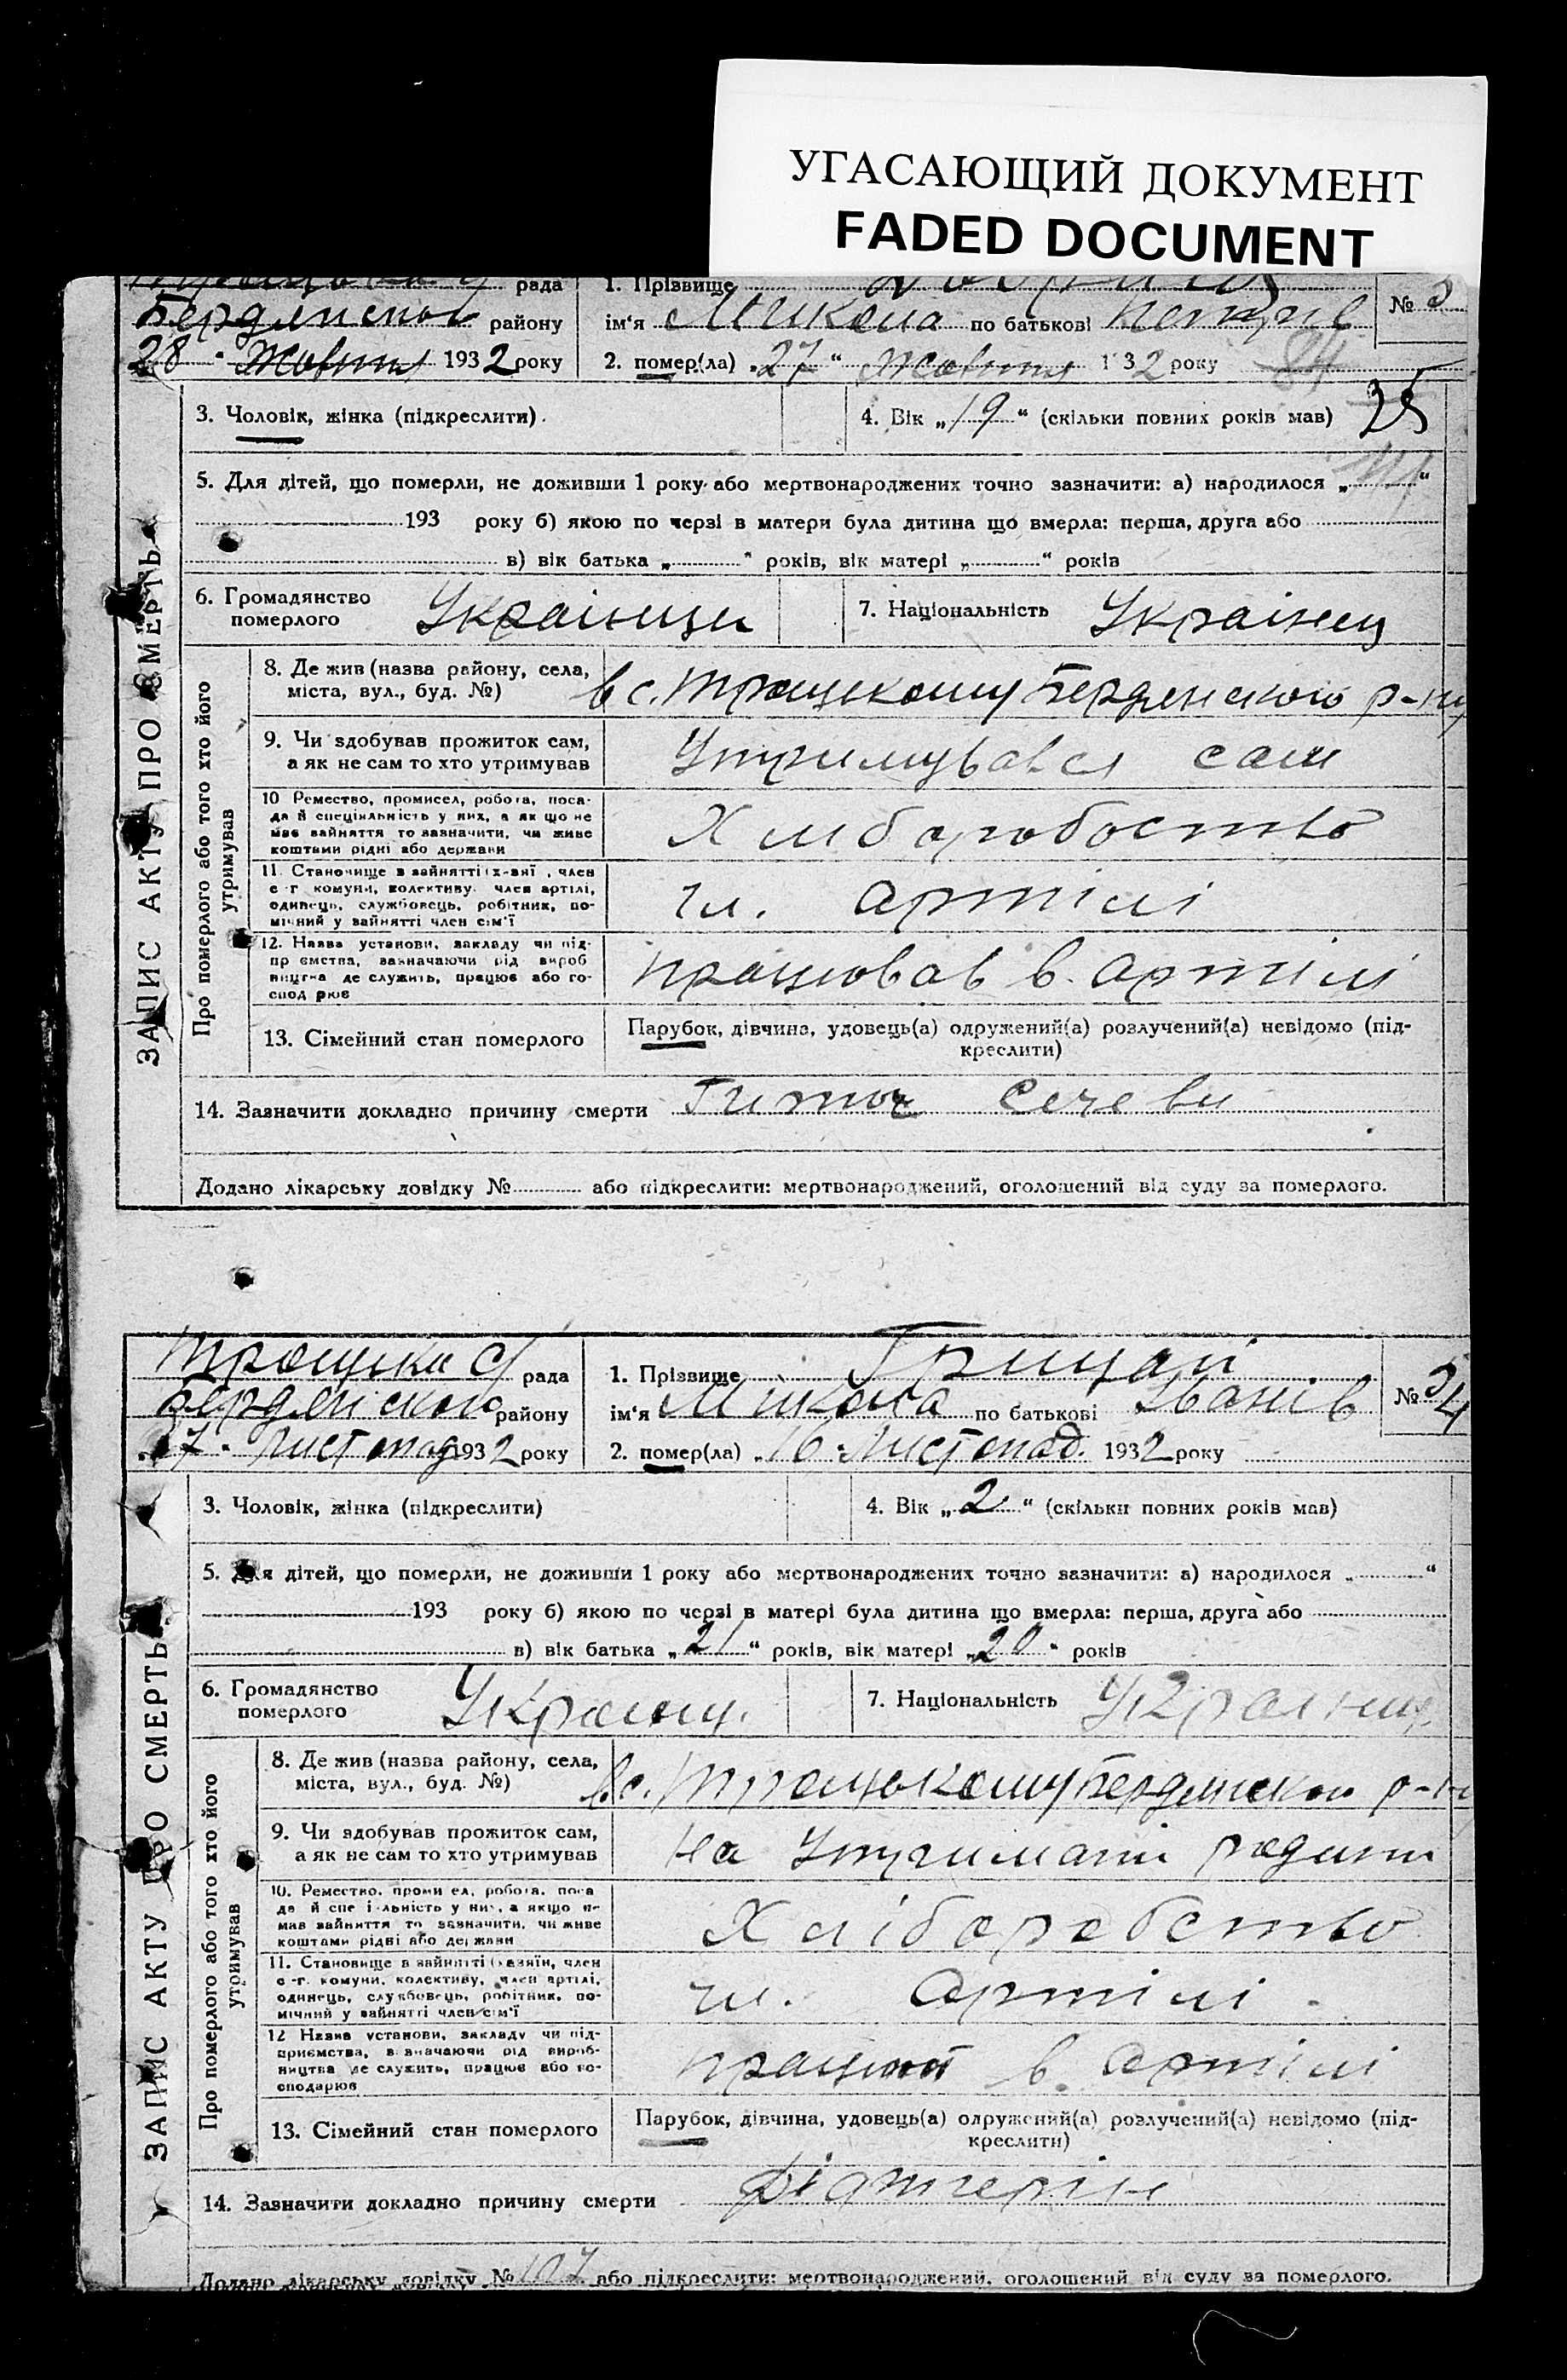 УГАСАЮЩИЙ ДОКУМЕНТ
FADED DOCUMENT
рада
1. Прізвище
Бердянсько району
ім'я Микола по батькові Петрів
№ 3
28 " Жовтня 1932 року
2. помер(ла) „27 “ Жовтня 1932 року
84
3. Чоловік, жінка (підкреслити).
4. Вік „19“ (скільки повних років мав)
25
5. Для дітей, що померли, не доживши 1 року або мертвонароджених точно зазначити: а) народилося „ “
193 року б) якою по черзі в матери була дитина що вмерла: перша, друга або
в) вік батька „ “ років, вік матері „ “ років
ЗАПИС АКТУ ПРО СМЕРТЬ
6. Громадянство
померлого
Українци
7. Національність Українец
Про померлого або того хто його
утримував
8. Де жив (назва району, села,
міста, вул., буд. №)
в с. Троцькому Бердянского р-ну
9. Чи здобував прожиток сам,
а як не сам то хто утримував
Утримувався сам
10 Ремество, промисел, робота, поса-
да й спеціяльність у них, а як що не
має зайняття то зазначити, чи живе
коштами рідні або держави
Хліборобство
11. Становище в зайнятті (х-зяї , член
с-г комуни, колективу, член артілі,
одинець, службовець, робітник, по-
мічний у зайнятті член сім'ї
чл. артілі
12. Назва установи, закладу чи під-
пр ємства, зазначаючи рід вироб
ництва де служить, працює або го-
спод рює
працював в. артілі
13. Сімейний стан померлого
Парубок, дівчина, удовець(а) одружений(а) розлучений(а) невідомо (під-
креслити)
14. Зазначити докладно причину смерти
Додано лікарську довідку № або підкреслити: мертвонароджений, оголошений від суду за померлого.
Троцька с/ рада
1. Прізвище Грицай
Бердянского району
ім'я Микола по батькові Іванів
№ 4
17 " Листопад 1932 року
2. помер(ла) „16 “ Листопад. 1932 року
3. Чоловік, жінка (підкреслити)
4. Вік „2“ (скільки повних років мав)
5. Для дітей, що померли, не доживши 1 року або мертвонароджених точно зазначити: а) народилося „ “
193 року б) якою по черзі в матері була дитина що вмерла: перша, друга або
в) вік батька „21“ років, вік матері „20“ років
ЗАПИС АКТУ ПРО СМЕРТЬ
6. Громадянство
померлого
Українц.
7. Національність Українц.
Про померлого або того хто його
утримував
8. Де жив (назва району, села,
міста, вул., буд. №)
в с. Троцькому Бердянского р-ну
9. Чи здобував прожиток сам,
а як не сам то хто утримував
на Утриманні родини
10. Ремество, промисел, робота, поса
да й спеціяльність у них, а якщо не
мав зайняття то зазначити, чи живе
коштами рідні або держави
Хліборобство
11. Становище в зайнятті (хазяїн, член
с-г. комуни, колективу, член артілі,
одинець, службовець, робітник, по-
мічний у зайнятті член сім'ї
чл. Артілі.
12 Назва установи, закладу чи під-
приємства, зазначаючи рід вироб-
ництва де служить, працює або го-
сподарює
в. Артілі
13. Сімейний стан померлого
Парубок, дівчина, удовець(а) одружений(а) розлучений(а) невідомо (під-
креслити)
14. Зазначити докладно причину смерти Діфтерін
Додано лікарську довідку № 107 або підкреслити: мертвонароджений, оголошений від суду за померлого.